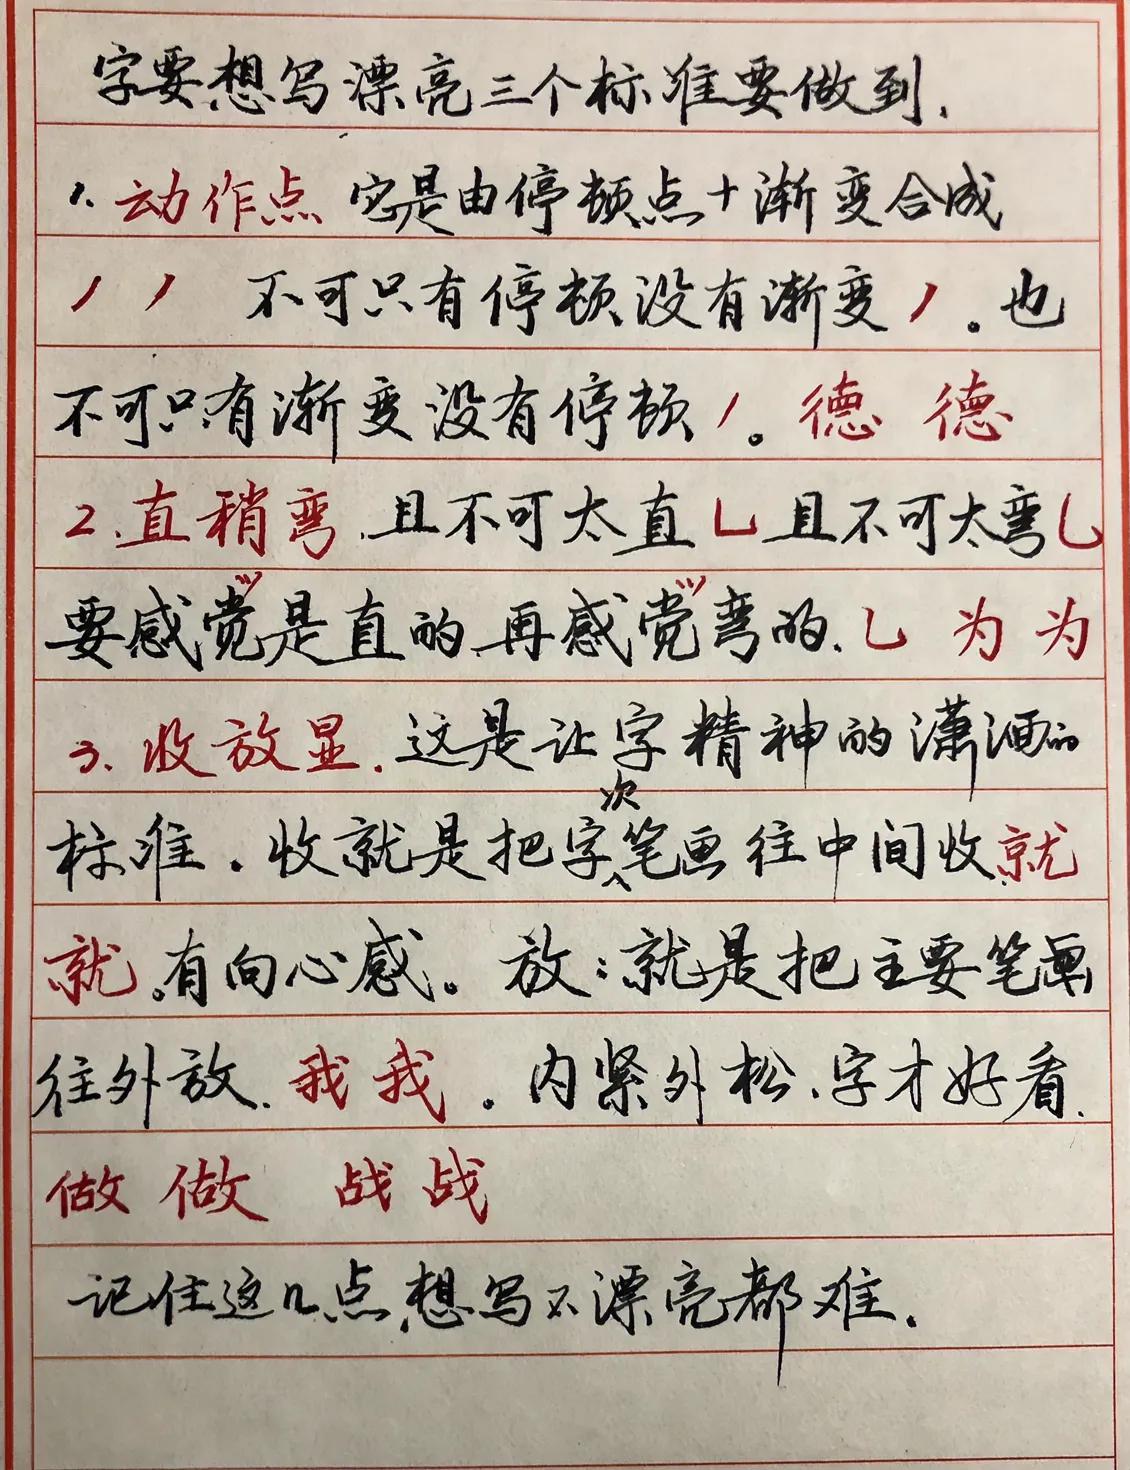 字要想写漂亮三个标准要做到.
1.动作点 它是由停顿点+渐变合成
丿 丿 不可只有停顿没有渐变丿。也
不可只有渐变没有停顿丿。德 德
2.直稍弯.且不可太直乚且不可太弯乚
要感觉是直的.再感觉弯的.乚 为 为
3.收放显.这是让字精神的潇洒的
标准.收就是把字次笔画往中间收.就
就.有向心感。放:就是把主要笔画
往外放.我我.内紧外松.字才好看.
做做 战战
记住这几点.想写不漂亮都难.